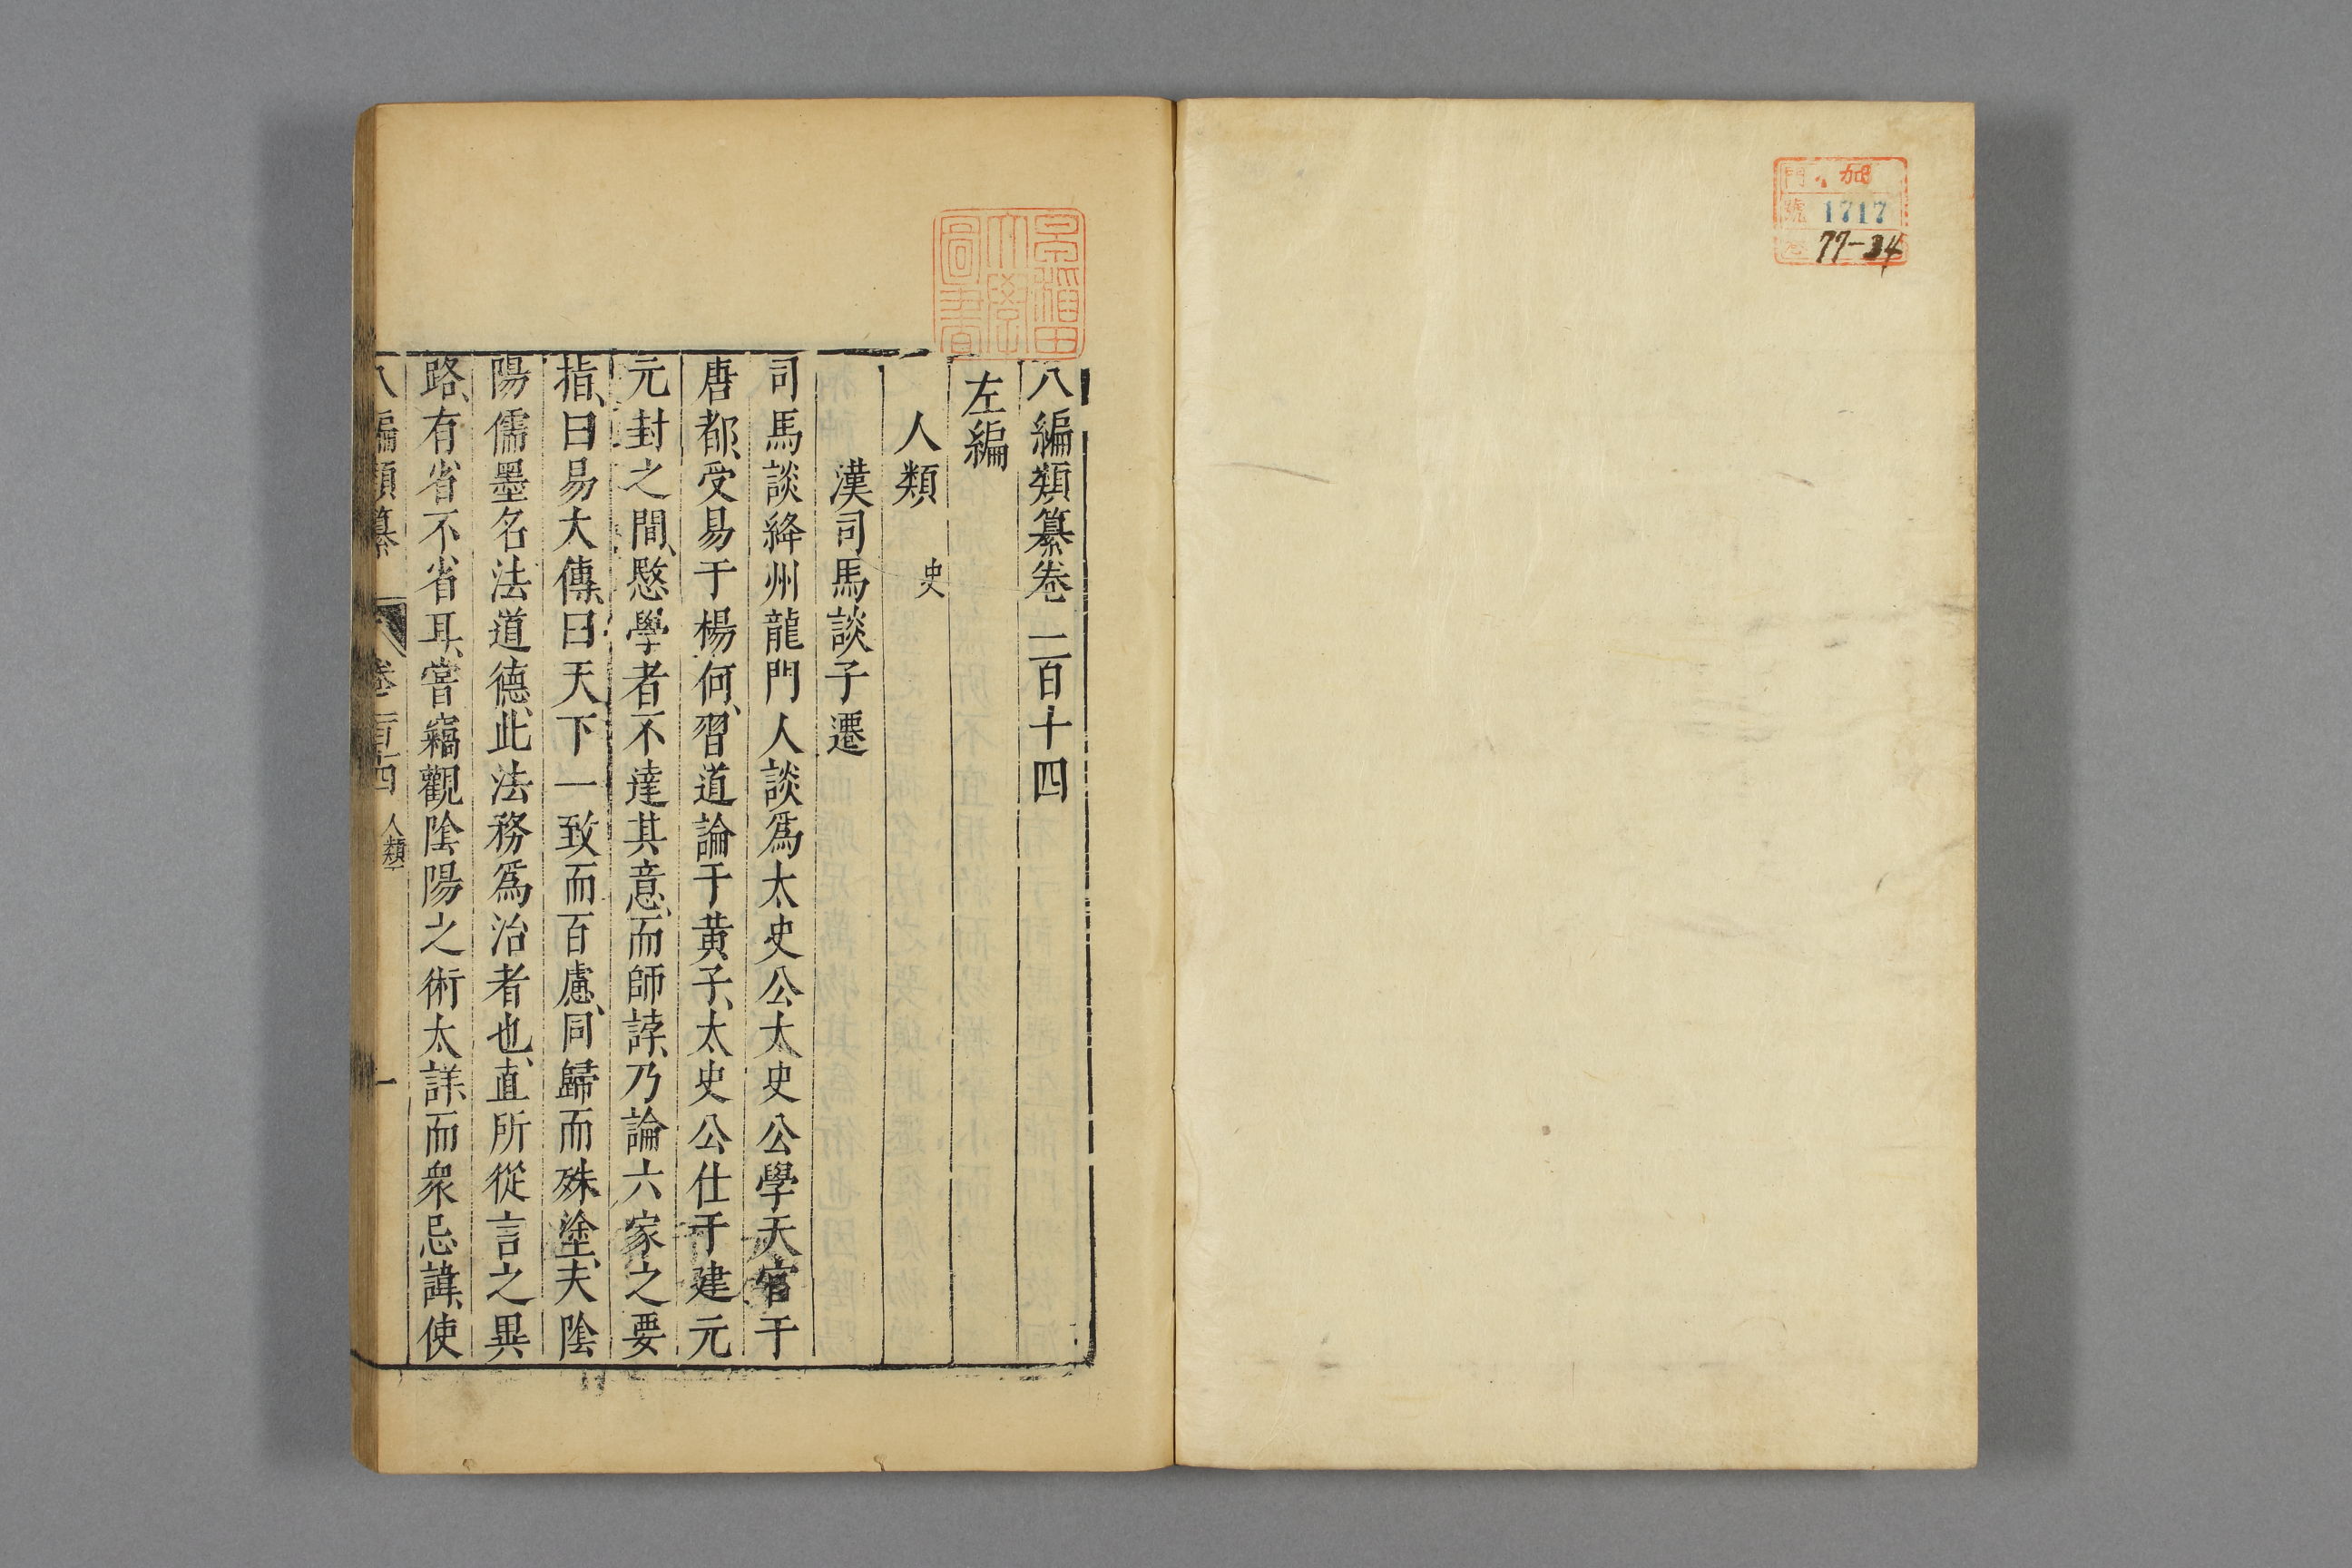 加
門
號 1717
卷 77-34
早稲田
大學
圖書
八編類纂卷二百十四
左編
人類 史
漢司馬談子遷
司馬談絳州龍門人談爲太史公太史公學天官于
唐都、受易于楊何、習道論于黄子、太史公仕于建元
元封之間、愍學者不達其意、而師誖、乃論六家之要
指、曰易大傳、曰天下一致而百慮、同歸而殊塗、夫陰
陽儒墨名法道德、此法務爲治者也、直所從言之異
路、有省不省耳、嘗竊觀陰陽之術太詳、而衆忌諱、使
八編類纂 卷二百十四 人類 一